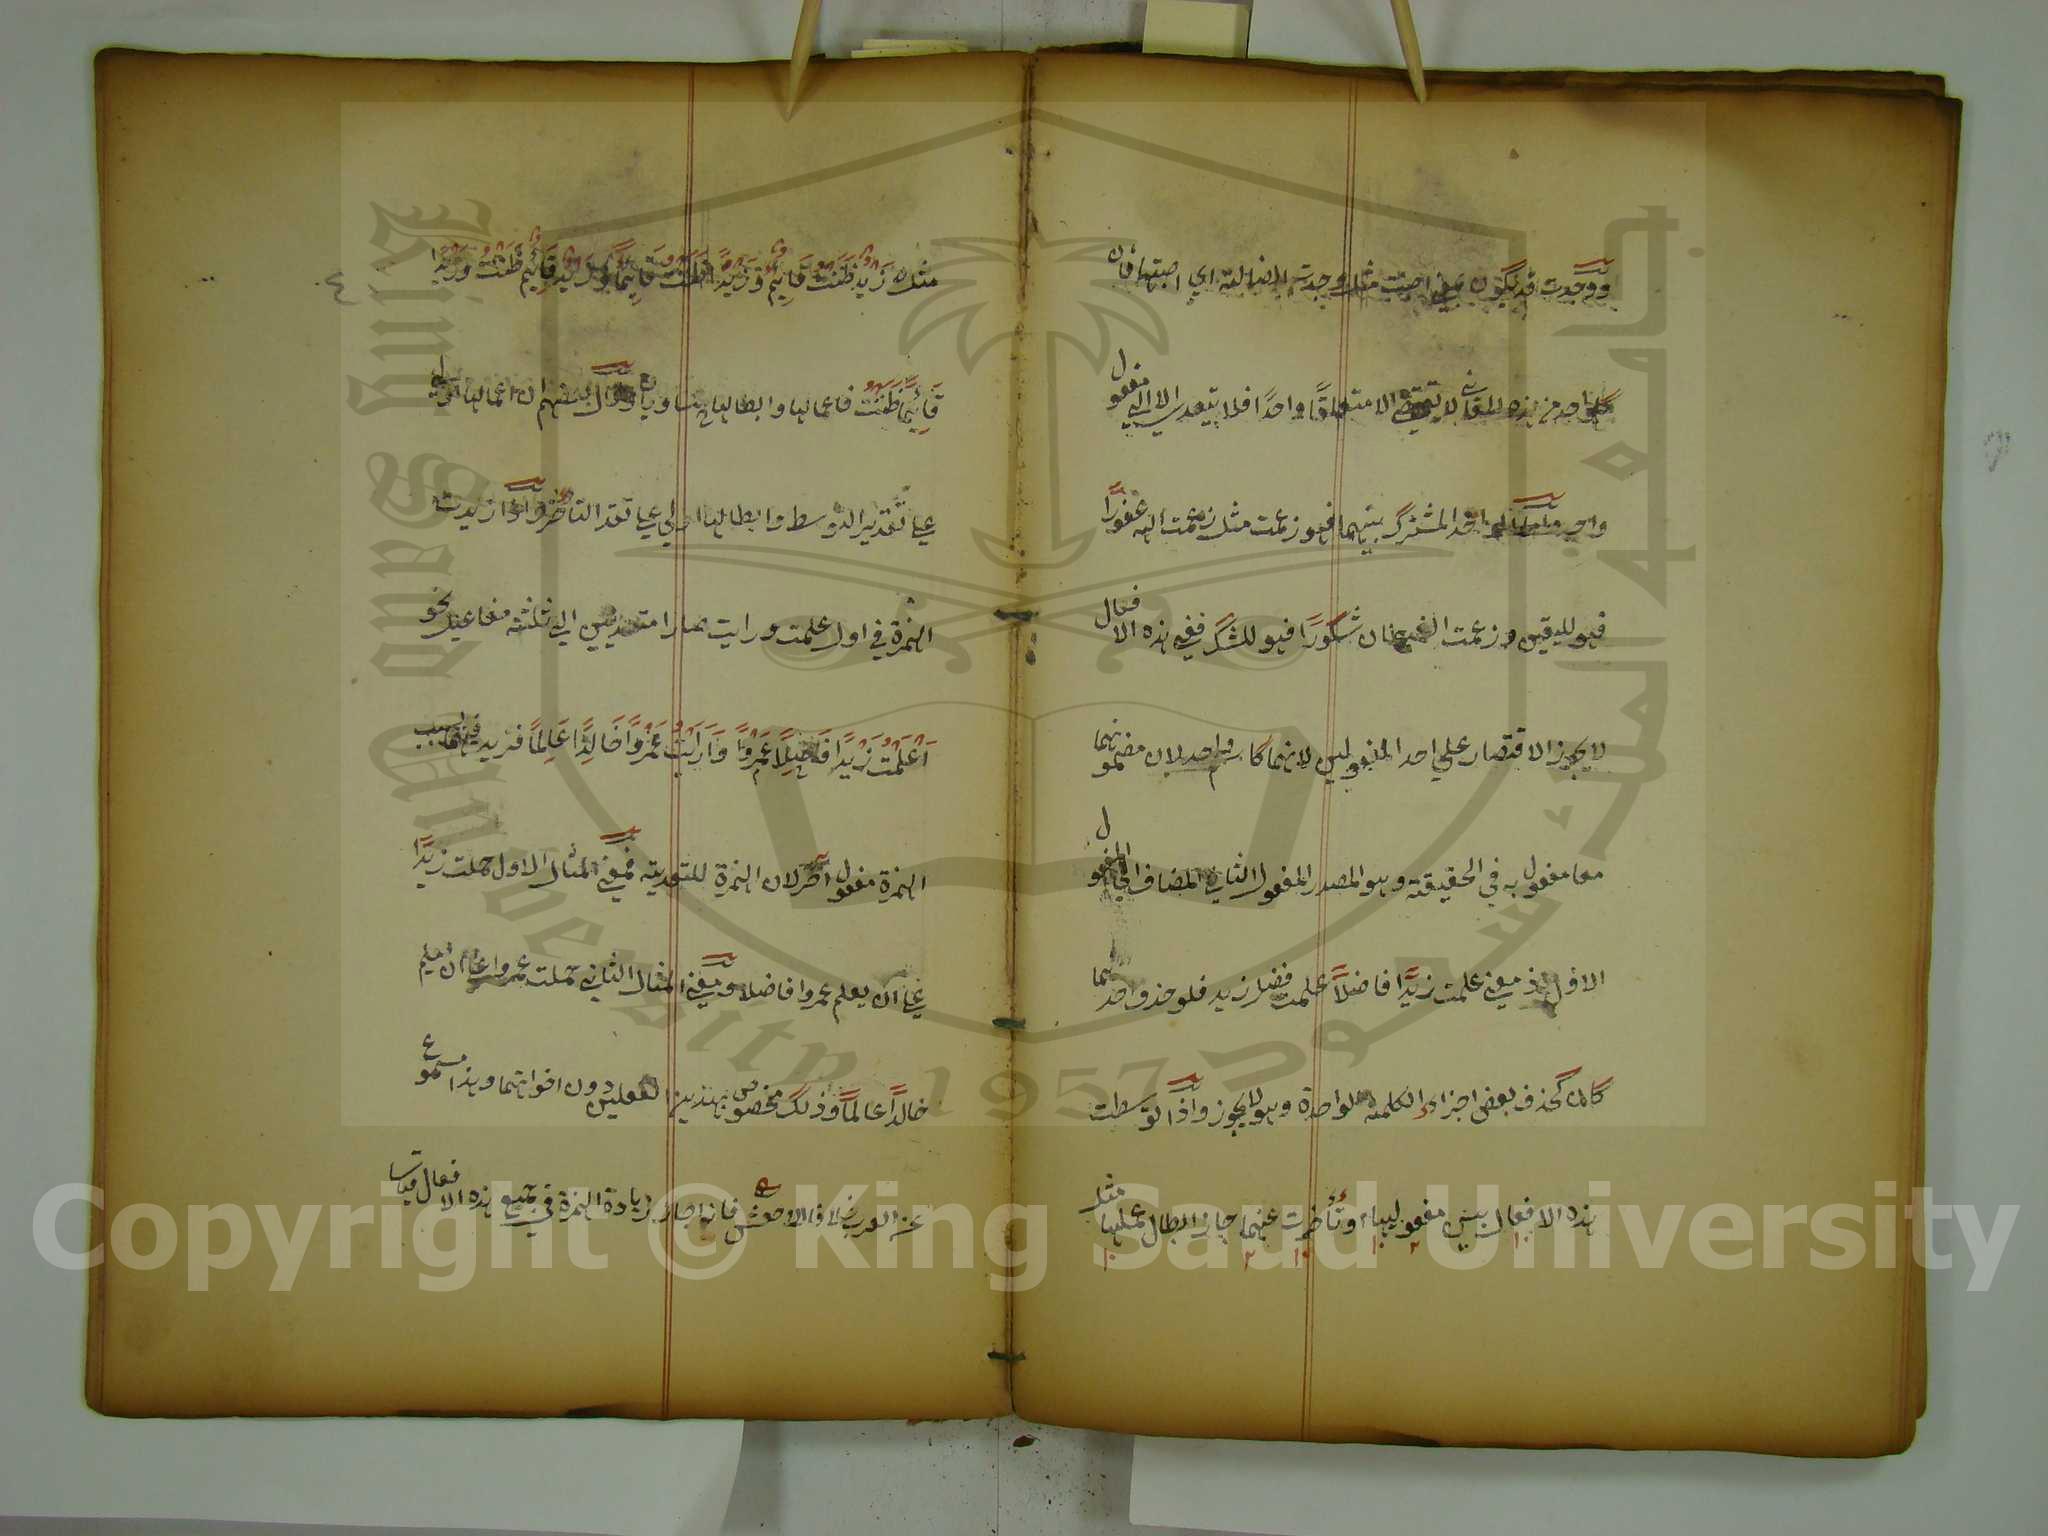 ووجدت قد يكون بمعنى اصبت مثل وجدت الضالة اي اصبتها فان
كل واحد من هذه المعاني لا تقتضي الا متعلقا واحدًا فلا تتعدي الا الي مفعول
واحد المشترك بينهما فهو زعمت مثل زعمت الله غفورًا
فهو لليقين وزعمت الشيطان شكورًا فهو للشك ففي هذه الافعال
لا يجوز الاقتصار علي احد المفعولين لانهما كاسم واحد لان مضمونهما
معا مفعول به في الحقيقة وهو المصدر المفعول الثاني المضاف الي المفعول
الاول اذ معنى علمت زيدًا فاضلاً علمت فضل زيد فلو حذف احدهما
كان كحذف بعض اجزاء الكلمة الواحدة وهو لا يجوز واذا توسطت
هذه الافعال بين مفعوليها وتأخرت عنهما جاز ابطال عملها مثل
مثل زَيْدٌ ظَنَنْتُ قَائِمٌ وَزَيْدًا ظَنَنْتُ قَائِمًا وَزَيْدٌ قَائِمٌ ظَنَنْتُ وَزَيْدًا
قَائِمًا ظَنَنْتُ فاعمالها وابطالها متساويان وقال بعضهم ان اعمالها اولي
علي تقدير التوسط وابطالها اولي علي تقدير التأخر واذا زيدت
الهمزة في اول علمت ورايت صارا متعديين الي ثلثة مفاعيل نحو
اَعْلَمْتُ زَيْدًا فَاضِلًا عَمْرًوا وَاَرَيْتُ عَمْرًوا خَالِدًا عَالِمًا فزيد فيهما بسبب
الهمزة مفعول آخر لان الهمزة للتعدية فمعنى المثال الاول حملت زيدًا
علي ان يعلم عمروا فاضلا ومعنى المثال الثاني حملت عمروا علي ان يعلم
خالدًا عالمًا وذلك مخصوص بهذين الفعلين دون اخواتهما وهذا مسموع
من العرب خلافا للاخفش فانه اجاز زيادة الهمزة في جميع هذه الافعال قياسا
Copyright © King Saud University
King Saud University
جامعة الملك سعود
1957